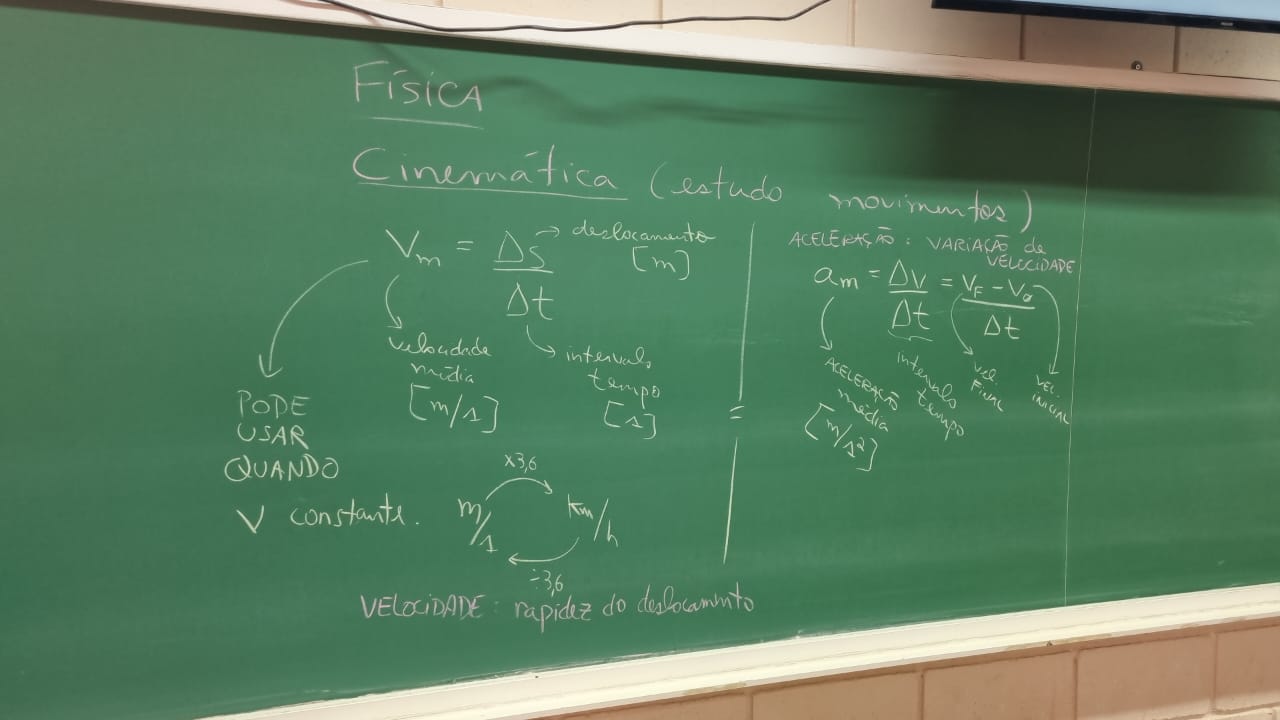 Física
Cinemática (estudo movimentos)
Vm = ΔS/Δt
→ deslocamento
[m]
velocidade
média
[m/s]
→ intervalo
tempo
[s]
PODE
USAR
QUANDO
V constante.
x3,6
m/s
km/h
÷3,6
VELOCIDADE: rapidez do deslocamento
ACELERAÇÃO: VARIAÇÃO de
VELOCIDADE
am = ΔV/Δt = VF - V0/Δt
ACELERAÇÃO
média
[m/s²]
intervalo
tempo
vel.
FINAL
VEL.
INICIAL